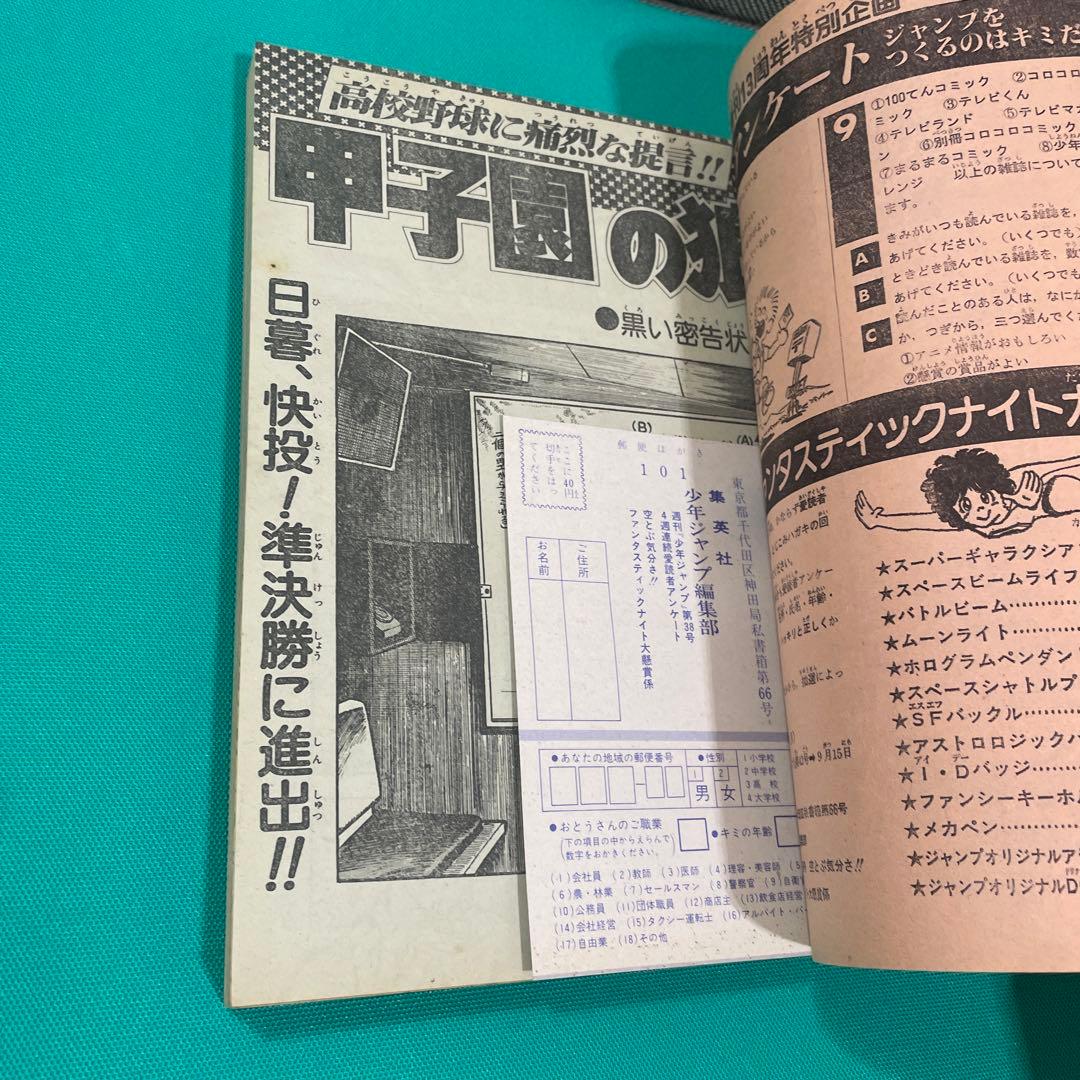 高校野球に痛烈な提言!!
甲子園の狼
●黒い密告状
日暮、快投!準決勝に進出!!
(B)
(A)
郵便はがき
ここに40円
切手をはっ
てください
101
東京都千代田区神田局私書箱第66号
集英社
少年ジャンプ編集部
週刊「少年ジャンプ」第38号
4週連続愛読者アンケート
空とぶ気分さ!!
ファンタスティックナイト大懸賞係
ご住所
お名前
●あなたの地域の郵便番号
●性別
1
2
男
女
1 小学校
2 中学校
3 高校
4 大学校
●おとうさんのご職業
(下の項目の中からえらんで
数字をおかきください。)
●キミの年齢
(1)会社員 (2)教師 (3)医師 (4)理容・美容師
(6)農・林業 (7)セールスマン (8)警察官 (9)自衛官
(10)公務員 (11)団体職員 (12)商店主 (13)飲食店経営
(14)会社経営 (15)タクシー運転士 (16)アルバイト・パー
(17)自由業 (18)その他
13周年特別企画
ンケート
ジャンプを
つくるのはキミだ
9
①100てんコミック ②コロコロ
ミック ③テレビくん
④テレビランド ⑤テレビマガ
ン ⑥別冊コロコロコミック
⑦まるまるコミック ⑧少年
レンジ 以上の雑誌について
ます。
A
きみがいつも読んでいる雑誌を、
あげてください。(いくつでも)
B
ときどき読んでいる雑誌を、数
あげてください。(いくつでも
C
読んだことのある人は、なにが
か、つぎから、三つ選んでくだ
①アニメ情報がおもしろい
②懸賞の賞品がよい
ンタスティックナイト大
★スーパーギャラクシア
★スペースビームライフ
★バトルビーム
★ムーンライト
★ホログラムペンダン
★スペースシャトルプ
★SFバックル
★アストロロジックバ
★I・Dバッジ
★ファンシーキーホ
★メカペン
★ジャンプオリジナルア
★ジャンプオリジナルD
9月15日
空とぶ気分さ!!